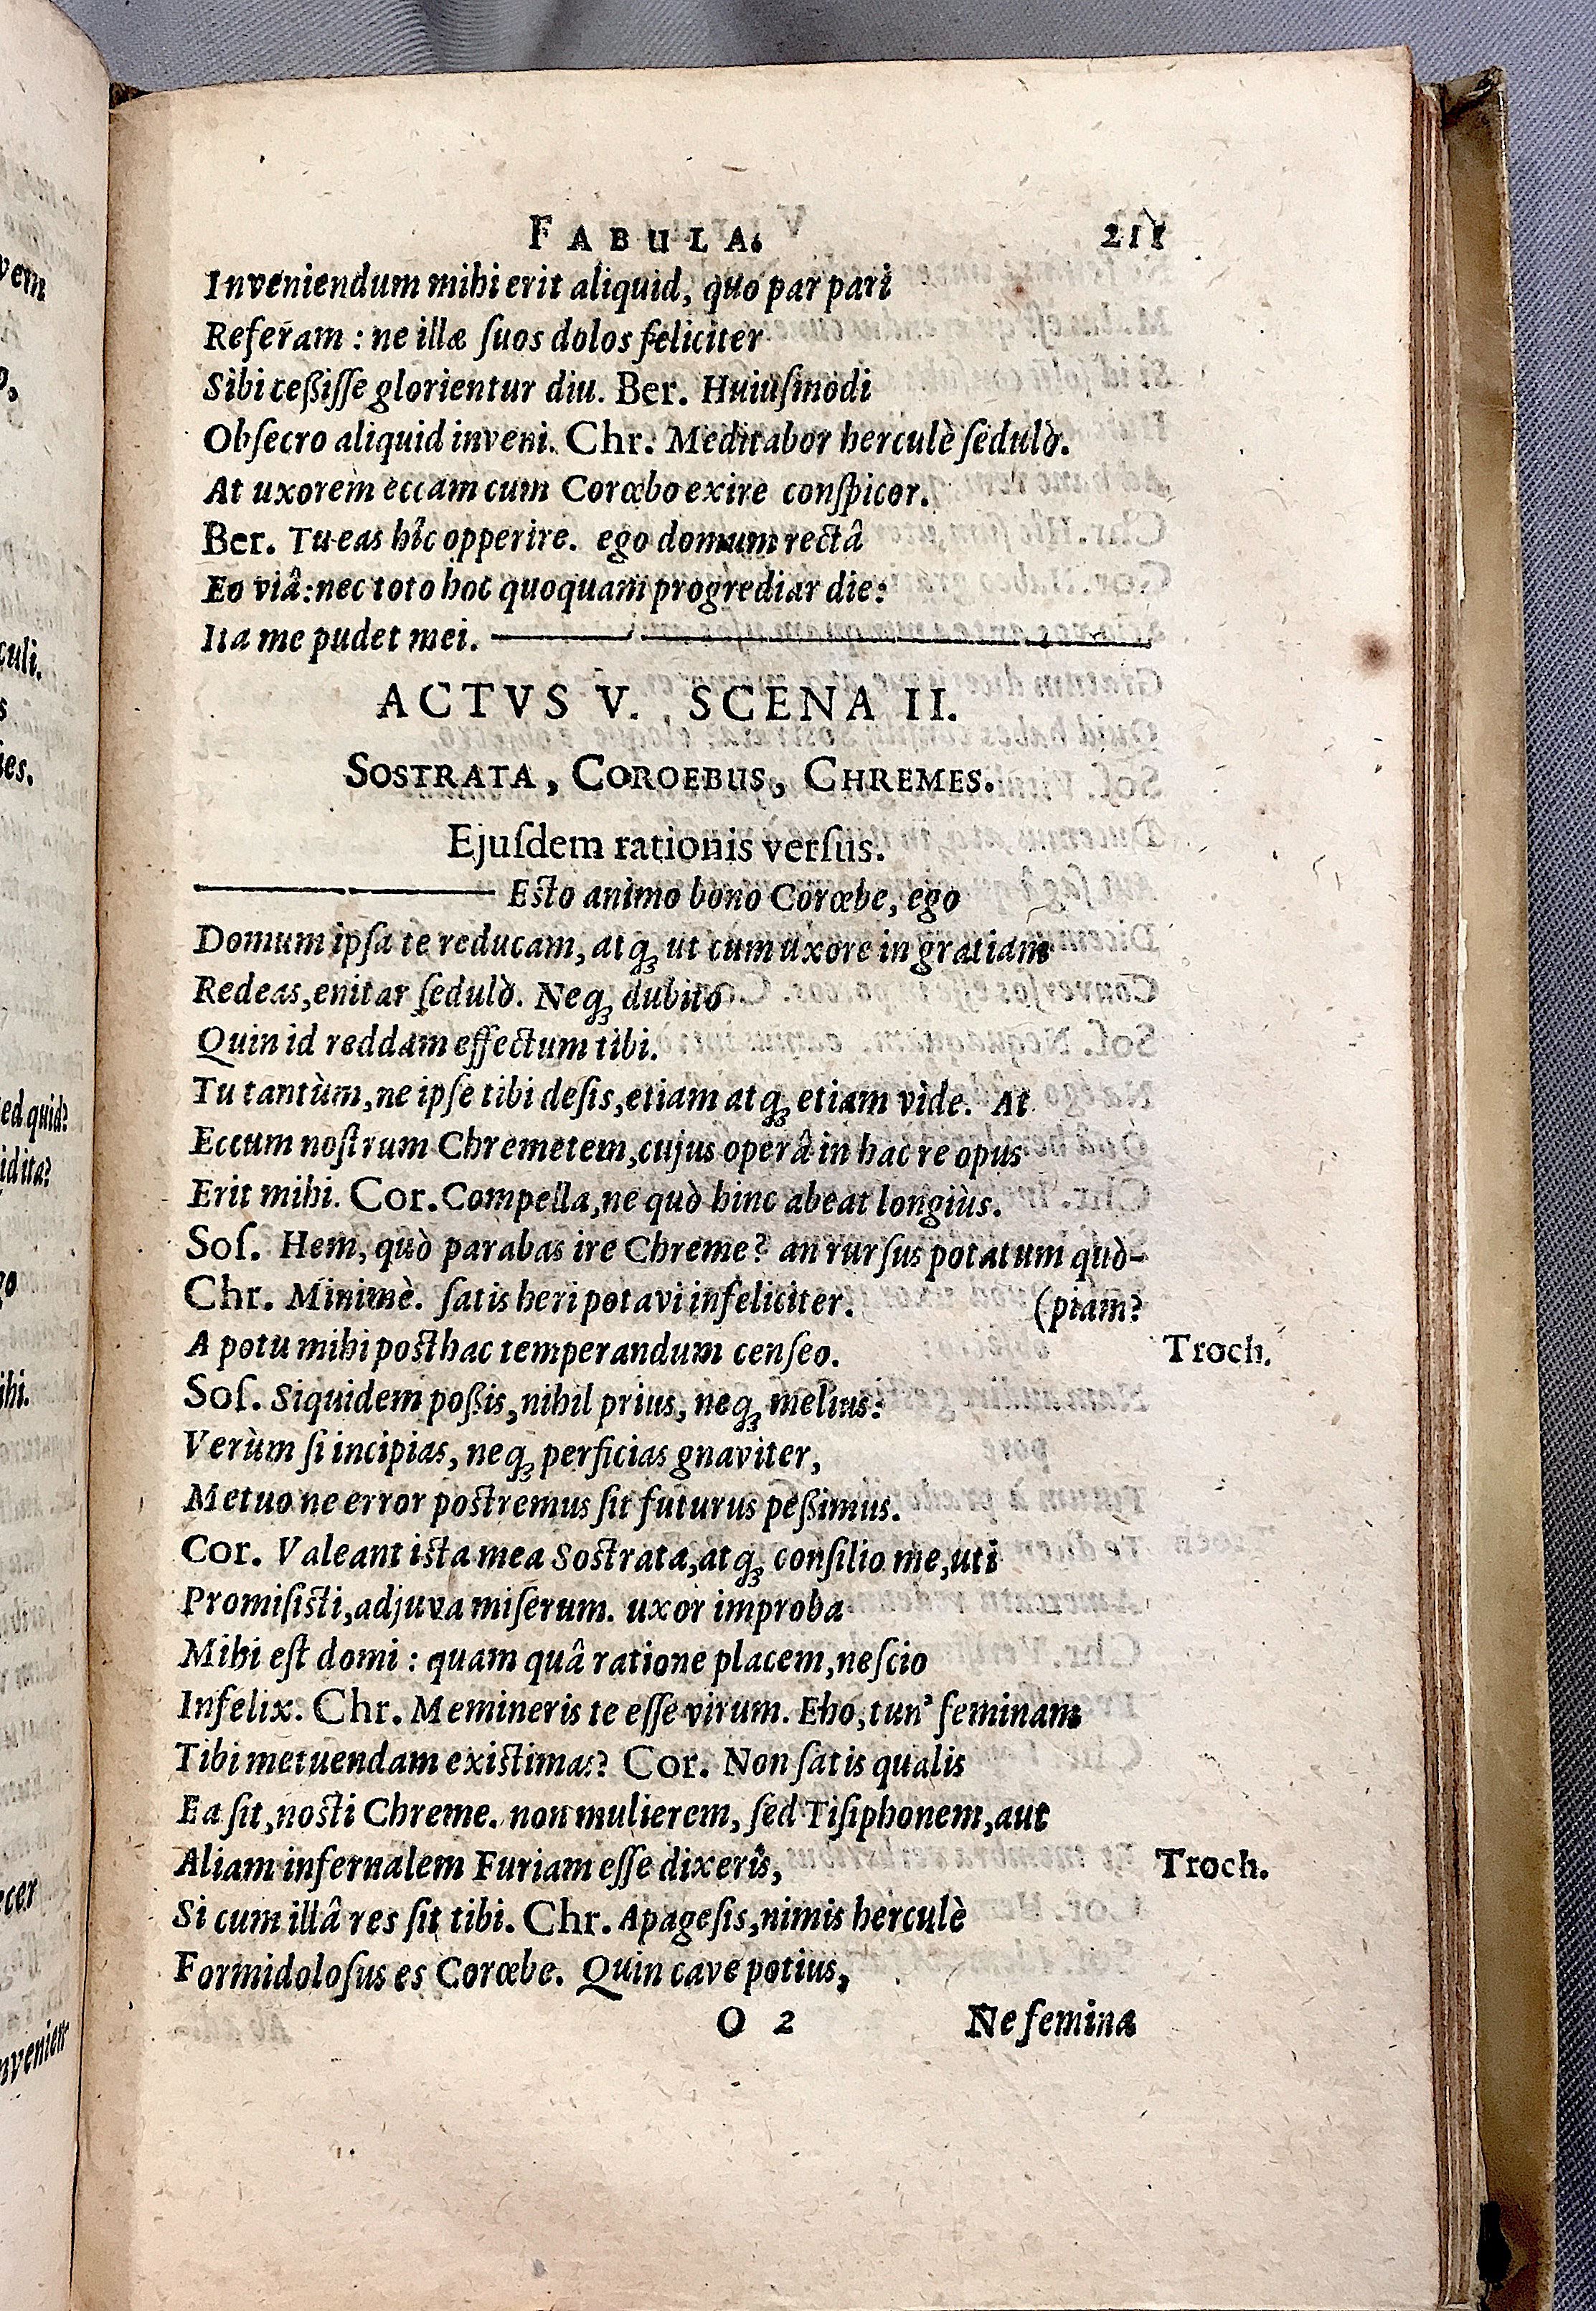 FABULA. 211
Inveniendum mihi erit aliquid, quo par pari
Referam : ne illæ ſuos dolos feliciter
Sibi ceßiſſe glorientur diu. Ber. Huiuſmodi
Obſecro aliquid inveni. Chr. Meditabor herculè ſedulò.
At uxorem eccam cum Corœbo exire conſpicor.
Ber. Tu eas hîc opperire. ego domum rectâ
Eo viâ: nec toto hoc quoquam progrediar die:
Ita me pudet mei.
ACTVS V. SCENA II.
SOSTRATA, COROEBUS, CHREMES.
Ejuſdem rationis verſus.
Eſto animo bono Corœbe, ego
Domum ipſa te reducam, atq́ꝫ ut cum uxore in gratiam
Redeas, enitar ſedulò. Neq́ꝫ dubito
Quin id reddam effectum tibi.
Tu tantùm, ne ipſe tibi deſis, etiam atq́ꝫ etiam vide. At
Eccum noſtrum Chremetem, cujus operâ in hac re opus
Erit mihi. Cor. Compella, ne quò hinc abeat longiùs.
Soſ. Hem, quò parabas ire Chreme? an rurſus potatum quò-
Chr. Minimè. ſatis heri potavi infeliciter. (piam?
A potu mihi poſthac temperandum cenſeo. Troch.
Soſ. Siquidem poßis, nihil prius, neq́ꝫ melius:
Verùm ſi incipias, neq́ꝫ perficias gnaviter,
Metuo ne error poſtremus ſit futurus peßimus.
Cor. Valeant iſta mea Soſtrata, atq́ꝫ conſilio me, uti
Promiſiſti, adjuva miſerum. uxor improba
Mihi eſt domi : quam quâ ratione placem, neſcio
Infelix. Chr. Memineris te eſſe virum. Eho, tun' feminam
Tibi metuendam exiſtimas? Cor. Non ſatis qualis
Ea ſit, noſti Chreme. non mulierem, ſed Tiſiphonem, aut
Aliam infernalem Furiam eſſe dixeris, Troch.
Si cum illâ res ſit tibi. Chr. Apageſis, nimis herculè
Formidoloſus es Corœbe. Quin cave potius,
O 2 Ne femina